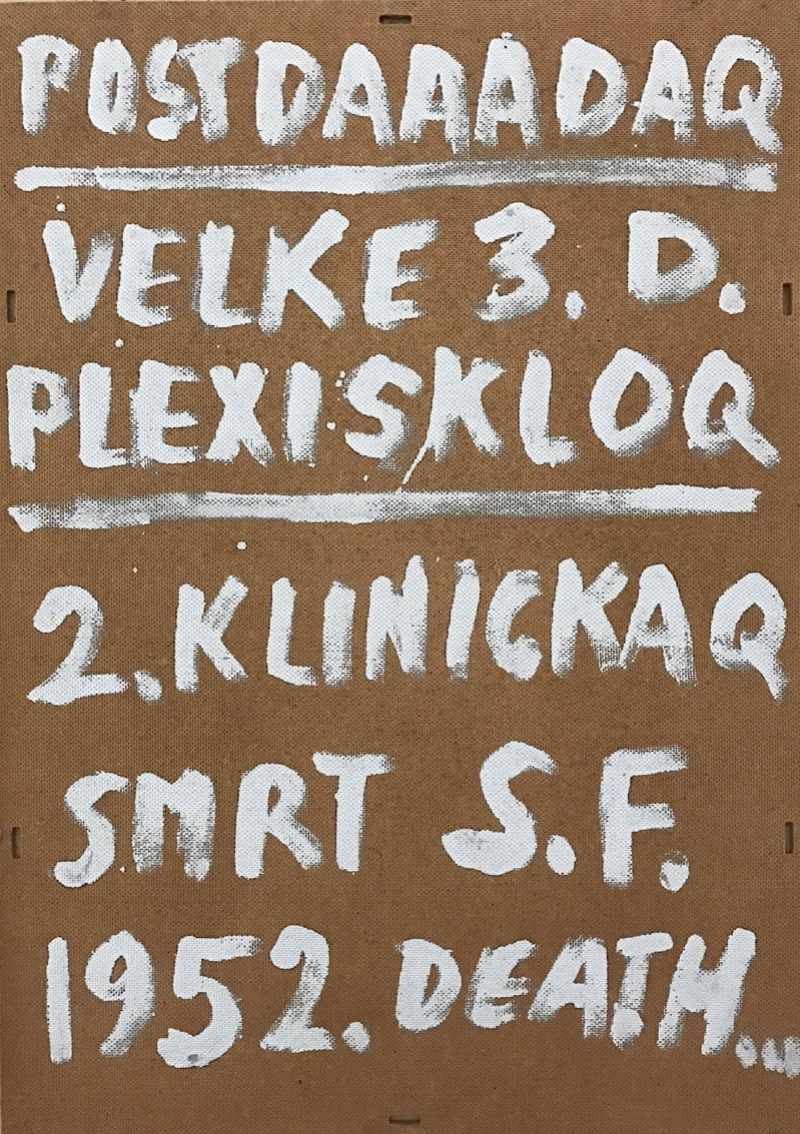 POSTDAAADAQ
VELKE 3. D.
PLEXISKLOQ
2. KLINICKAQ
SMRT S.F.
1952. DEATH...